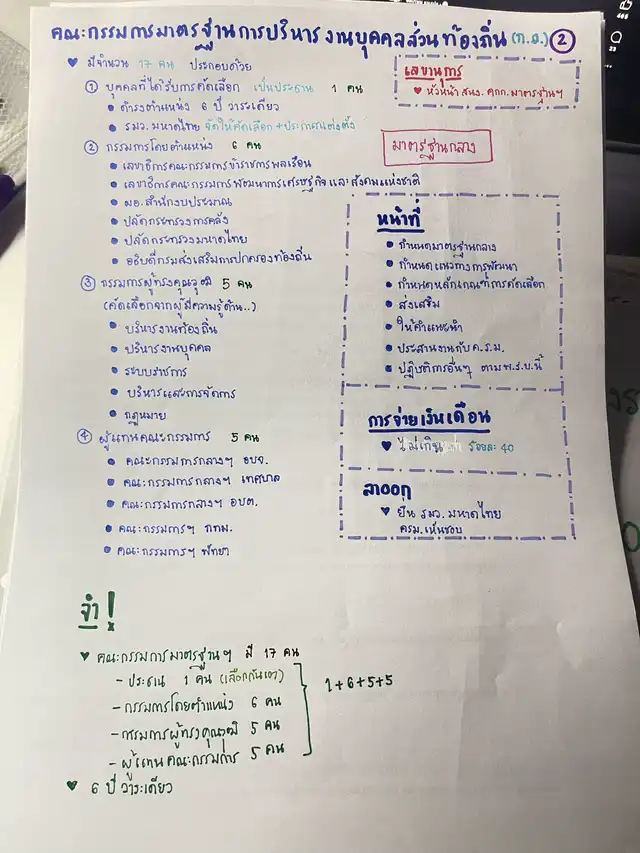 คณะกรรมการมาตรฐานการบริหารงานบุคคลส่วนท้องถิ่น (ก.ถ.) ②
♥ มีจำนวน 17 คน ประกอบด้วย
① บุคคลที่ได้รับการคัดเลือก เป็นประธาน 1 คน
• ดำรงตำแหน่ง 6 ปี วาระเดียว
• รมว.มหาดไทย จัดให้คัดเลือก + ประกาศแต่งตั้ง
② กรรมการโดยตำแหน่ง 6 คน
• เลขาธิการคณะกรรมการข้าราชการพลเรือน
• เลขาธิการคณะกรรมการพัฒนาการเศรษฐกิจและสังคมแห่งชาติ
• ผอ.สำนักงบประมาณ
• ปลัดกระทรวงการคลัง
• ปลัดกระทรวงมหาดไทย
• อธิบดีกรมส่งเสริมการปกครองท้องถิ่น
③ กรรมการผู้ทรงคุณวุฒิ 5 คน
(คัดเลือกจากผู้มีความรู้ด้าน..)
• บริหารงานท้องถิ่น
• บริหารงานบุคคล
• ระบบราชการ
• บริหารและการจัดการ
• กฎหมาย
④ ผู้แทนคณะกรรมการ 5 คน
• คณะกรรมการกลางฯ อบจ.
• คณะกรรมการกลางฯ เทศบาล
• คณะกรรมการกลางฯ อบต.
• คณะกรรมการฯ กทม.
• คณะกรรมการฯ พัทยา
เลขานุการ
♥ หัวหน้า สนง. คกก. มาตรฐานฯ
มาตรฐานกลาง
หน้าที่
• กำหนดมาตรฐานกลาง
• กำหนดแนวทางการพัฒนา
• กำหนดหลักเกณฑ์การคัดเลือก
• ส่งเสริม
• ให้คำแนะนำ
• ประสานงานกับ ค.ร.ม.
• ปฏิบัติการอื่นๆ ตาม พ.ร.บ.นี้
การจ่ายเงินเดือน
♥ ไม่เกิน ร้อยละ 40
ลาออก
♥ ยื่น รมว. มหาดไทย
ครม. เห็นชอบ
จำ!
♥ คณะกรรมการมาตรฐานฯ มี 17 คน
- ประธาน 1 คน (เลือกกันเอง)
- กรรมการโดยตำแหน่ง 6 คน
- กรรมการผู้ทรงคุณวุฒิ 5 คน
- ผู้แทนคณะกรรมการ 5 คน
1+6+5+5
♥ 6 ปี วาระเดียว